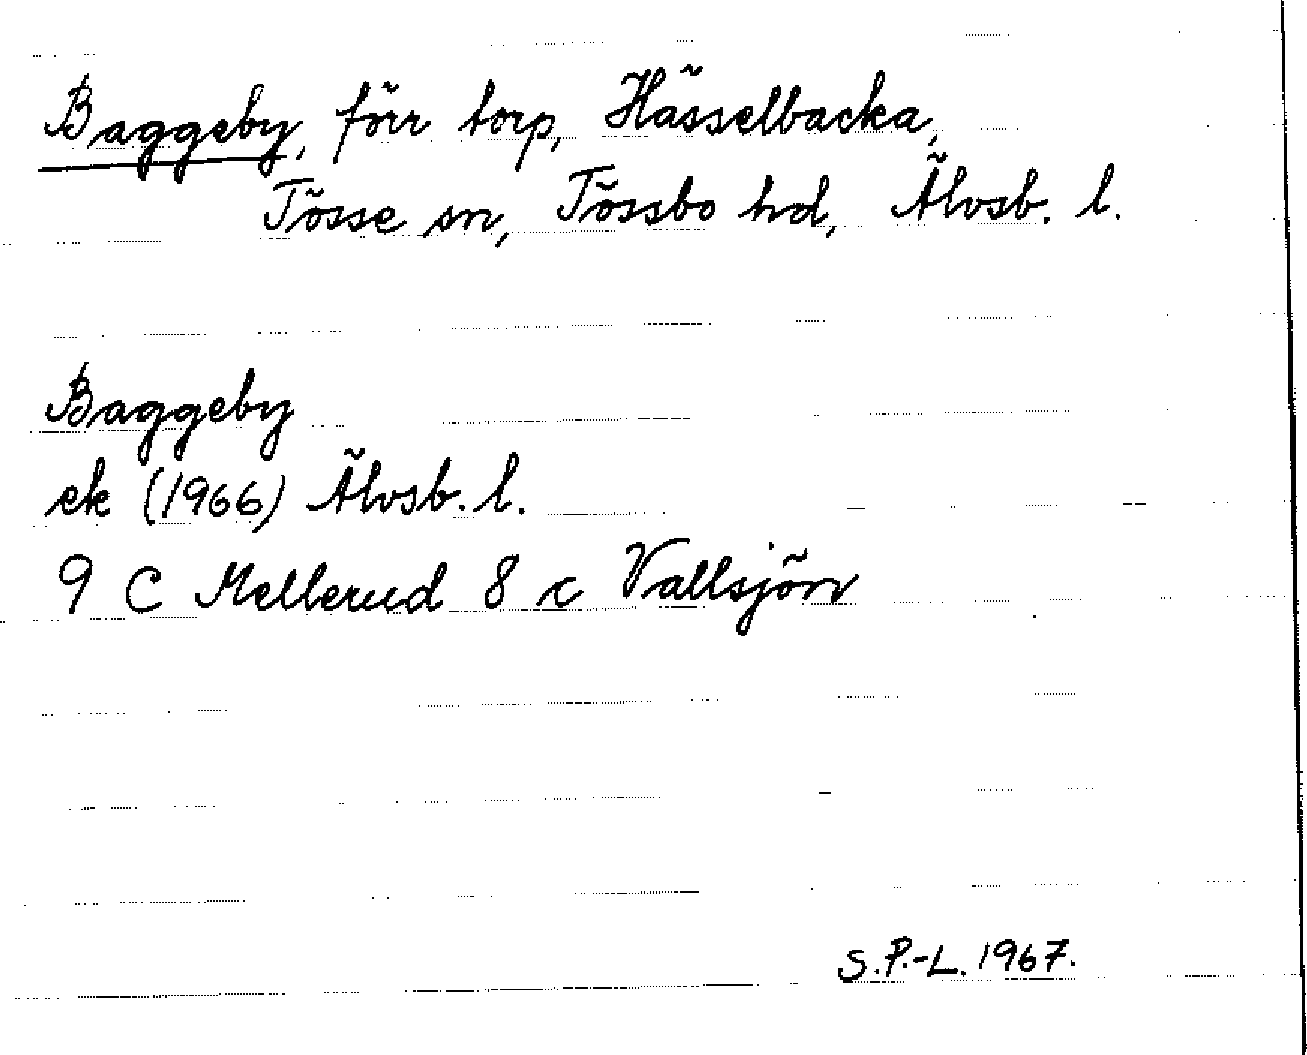 Baggeby, förr torp, Hässelbacka,
Tösse sn, Tössbo hd, Älvsb. l.
Baggeby
ek (1966) Älvsb. l.
9 C Mellerud 8 c Vallsjön
S.P.-L. 1967.